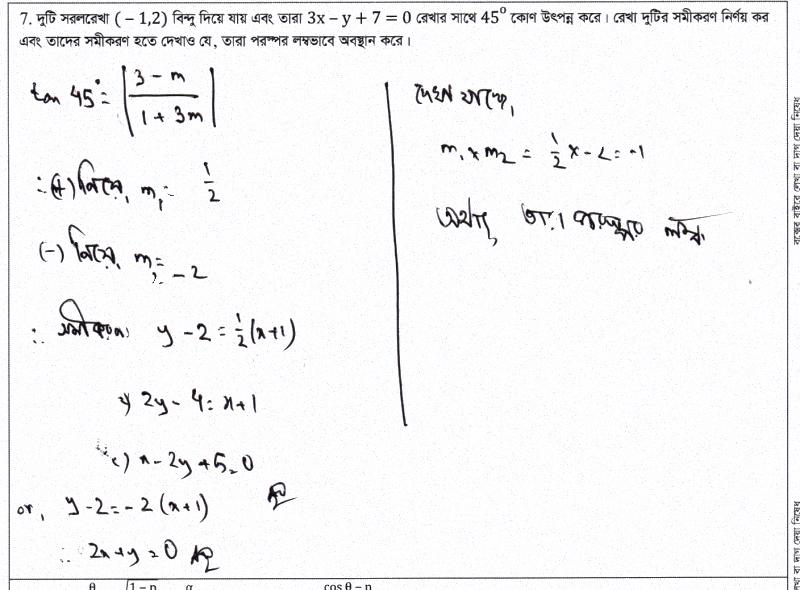 7. দুটি সরলরেখা (−1,2) বিন্দু দিয়ে যায় এবং তারা 3x − y + 7 = 0 রেখার সাথে 45° কোণ উৎপন্ন করে। রেখা দুটির সমীকরণ নির্ণয় কর
এবং তাদের সমীকরণ হতে দেখাও যে, তারা পরস্পর লম্বভাবে অবস্থান করে।
tan 45° = |(3 − m)/(1 + 3m)|
∴ (+) নিয়ে, m₁ = 1/2
(−) নিয়ে, m₂ = −2
∴ সমীকরণ y − 2 = 1/2 (x+1)
⇒ 2y − 4 = x + 1
x − 2y + 5 = 0
or, y − 2 = −2 (x+1)
∴ 2x + y = 0
দেখা যাচ্ছে,
m₁ × m₂ = 1/2 × −2 = −1
অর্থাৎ তারা পরস্পর লম্ব